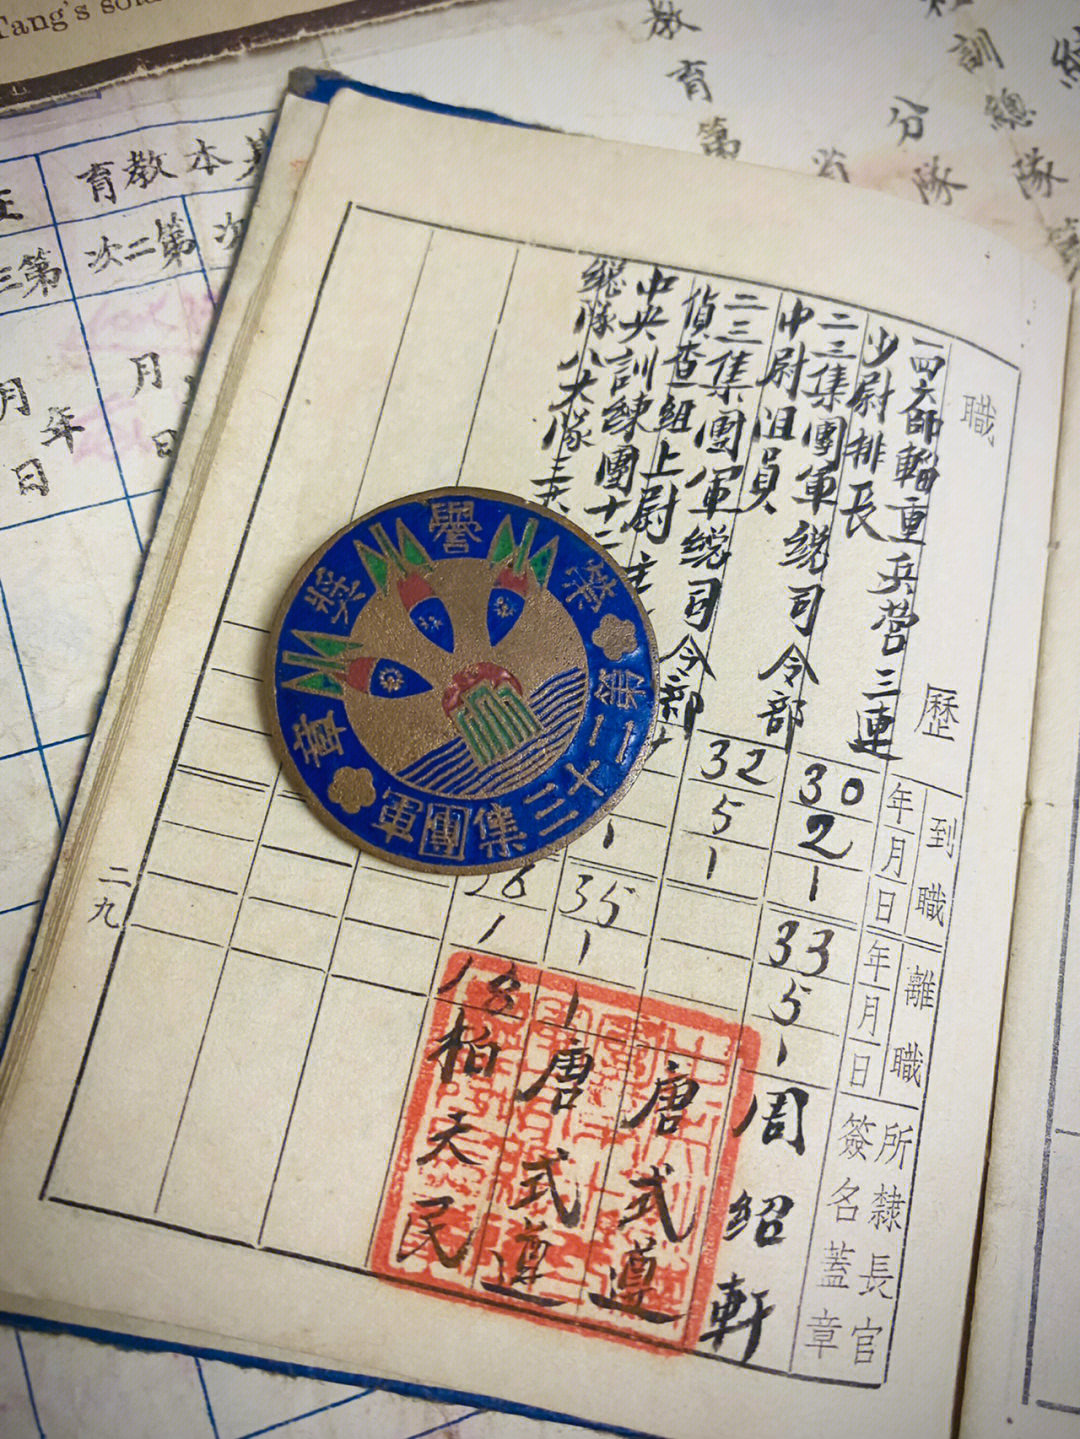 Tang's
教育第
分隊
訓總隊
育教本
次二第
三第
次
月
日
月
年
日
職歷
到職
年月日
離職
年月日
所隸長官
簽名蓋章
一四六師輜重兵營三連
少尉排長
二三集團軍総司令部
中尉沮員
二三集團軍総司令部
偵查組上尉
中央訓練團十二
総隊八大隊三
30
2
1
33
5
1
周紹軒
32
5
1
唐式遵
1
35
1
1
唐式遵
1
18
柏天民
二九
榮譽獎章
第二十三集團軍